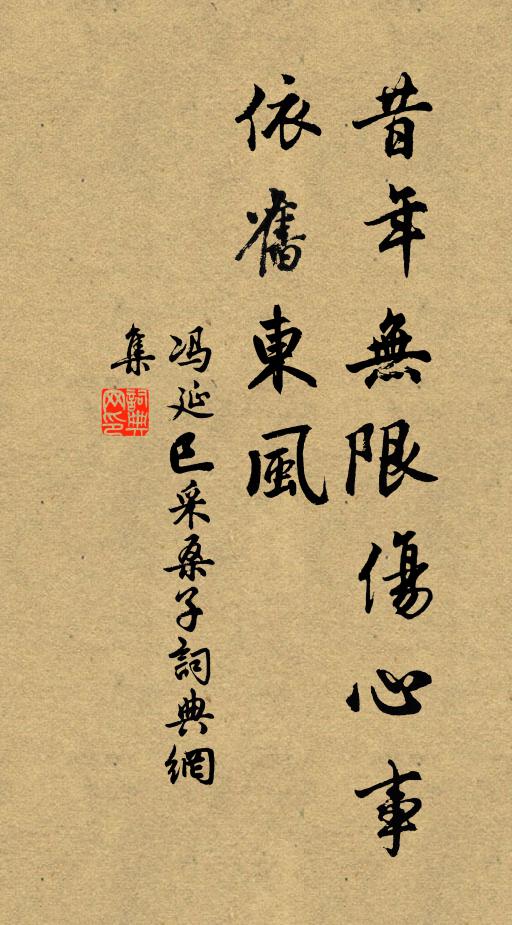 昔年無限傷心事
依舊東風
冯延巳采桑子詞典網
集
詞典
网印